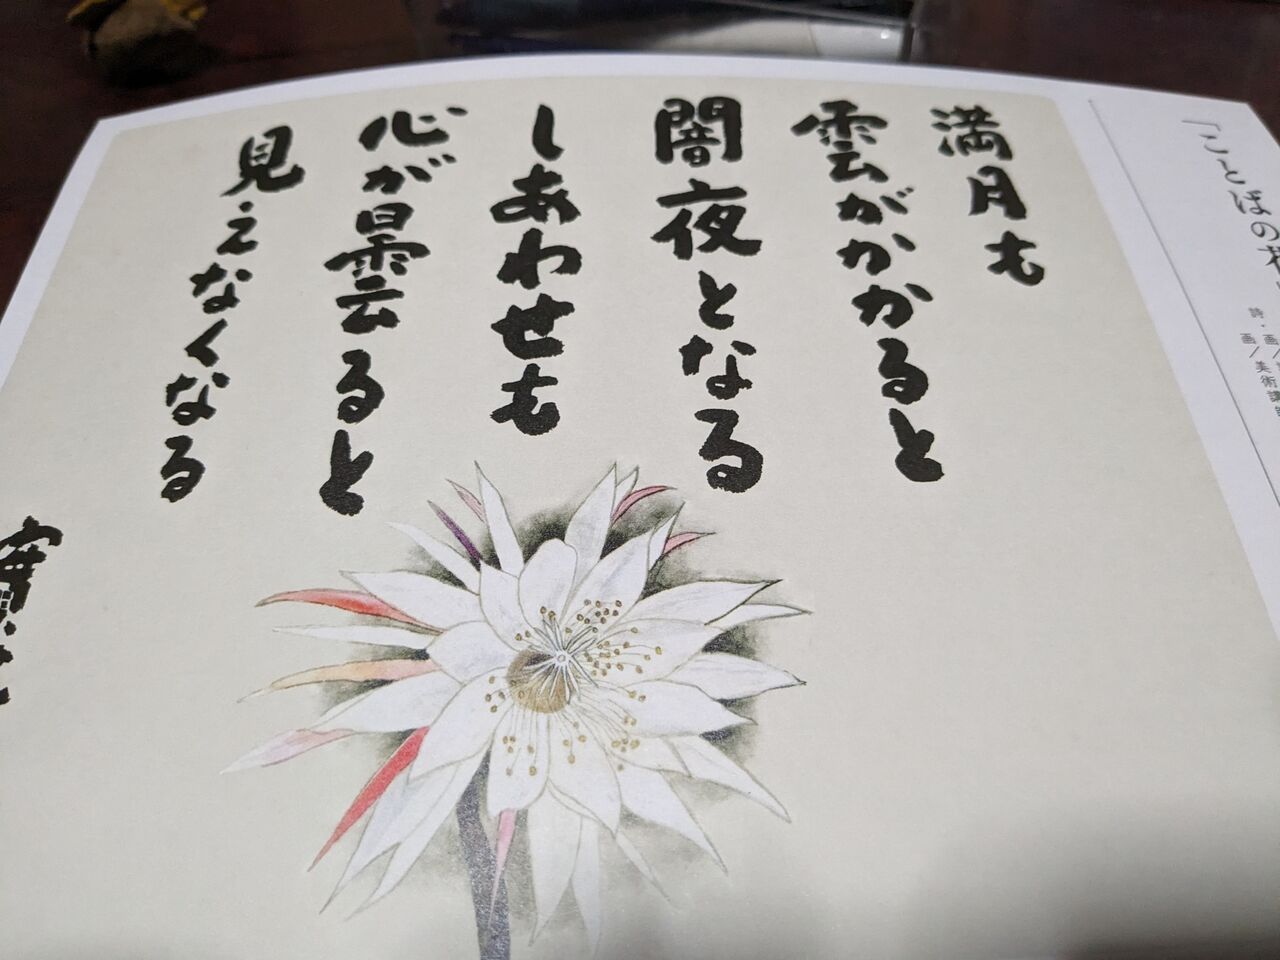 「ことばの花
詩・画/
画/美術講
満月も
雲がかかると
闇夜となる
しあわせも
心が曇ると
見えなくなる